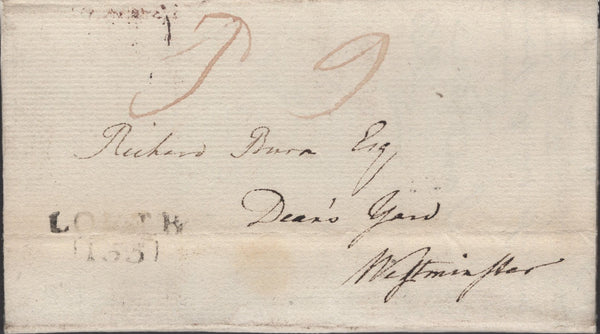 9
Richard Burn Esq
Dean's Yard
Westminster